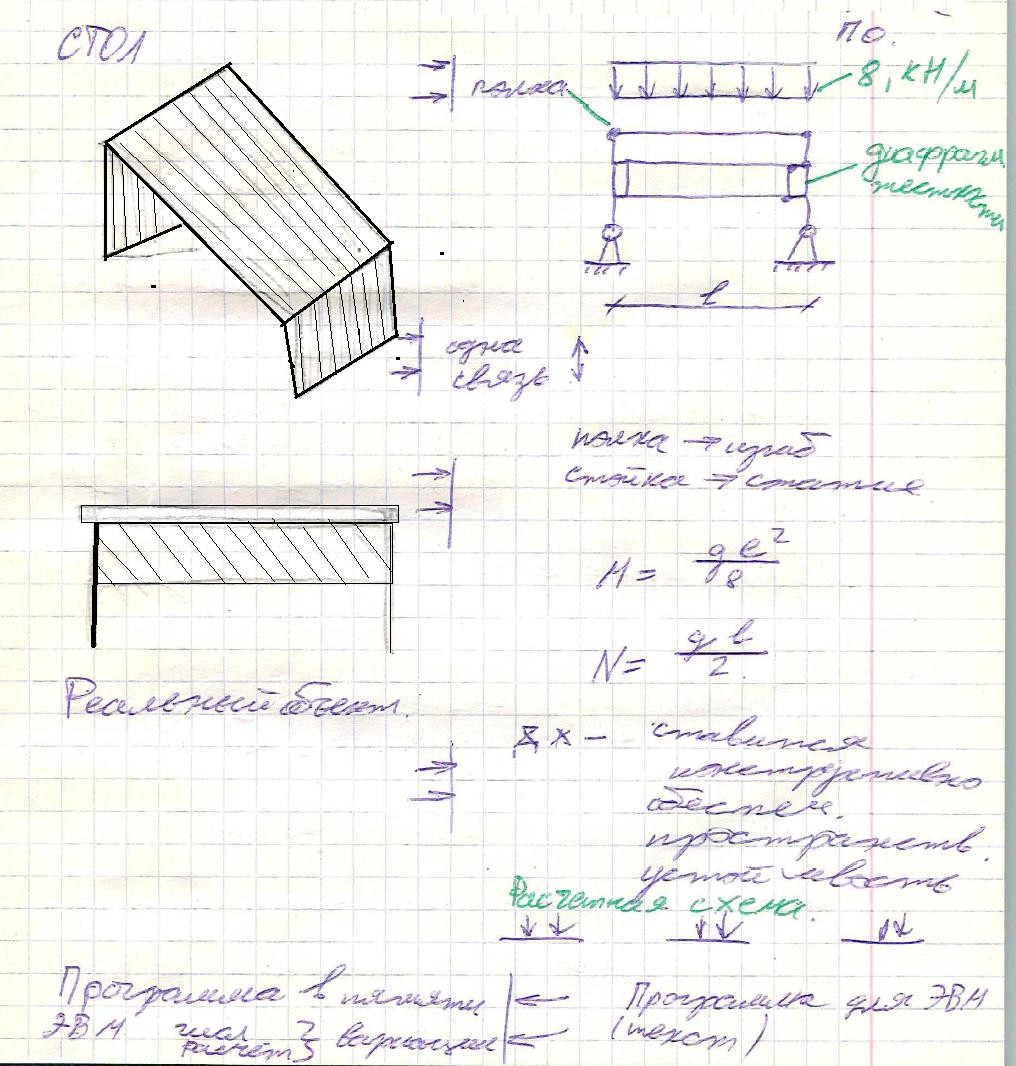 СТОЛ
ПО.
полка
8, кН/м
диафрагм.
жесткости
l
одна
связь
полка → изгиб
стойка → сжатие
M = qℓ²/8
N = qℓ/2
Реальный объект.
ДЖ – ставится
конструктивно
обеспеч.
пространств.
устойчивость
Расчетная схема.
Программа в памяти
ЭВМ
расчёт
вариации
Программа для ЭВМ
(текст)